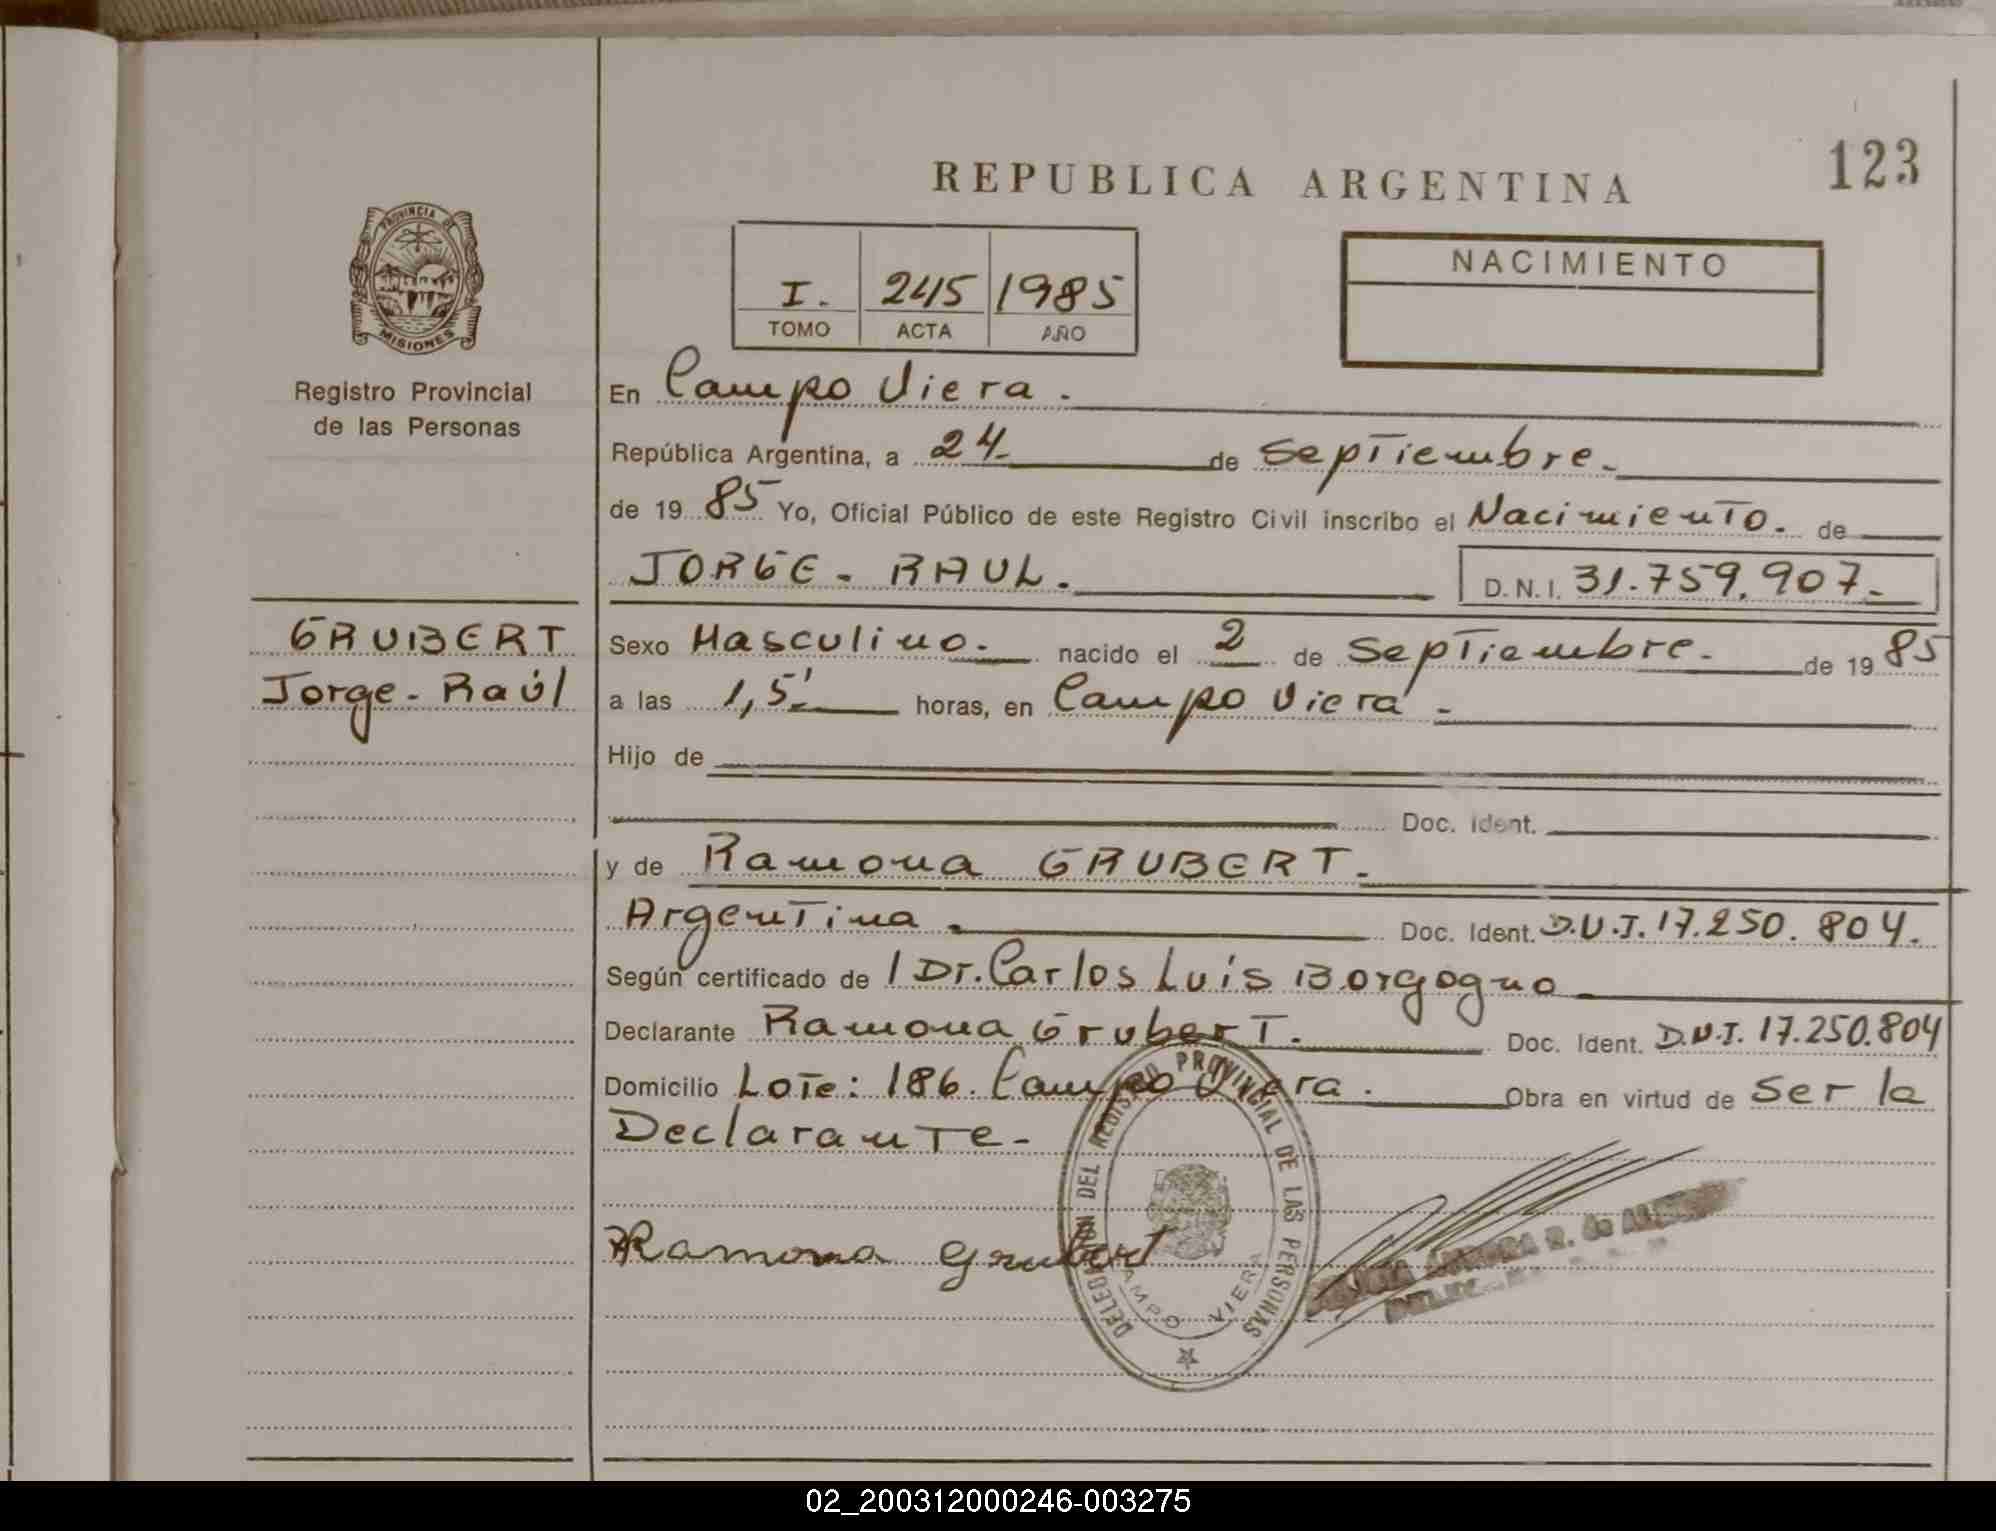 123
REPUBLICA ARGENTINA
PROVINCIA DE
MISIONES
Registro Provincial
de las Personas
I. 245 1985
TOMO ACTA AÑO
NACIMIENTO
En Campo Viera.
República Argentina, a 24 de Septiembre.
de 19 85 Yo, Oficial Público de este Registro Civil inscribo el Nacimiento. de
JORGE - RAUL. D.N.I. 31.759.907.-
GRUBERT
Jorge - Raúl
Sexo Masculino. nacido el 2 de Septiembre. de 19 85
a las 1,5' horas, en Campo Viera.
Hijo de
Doc. Ident.
y de Ramona GRUBERT.
Argentina. Doc. Ident. D.N.I. 17.250.804.
Según certificado de l Dr. Carlos Luís Borgogno
Declarante Ramona Grubert. Doc. Ident. D.N.I. 17.250.804
Domicilio Lote: 186. Campo Viera. Obra en virtud de Ser la
Declarante-
Ramona Grubert
DELEGACION DEL REGISTRO PROVINCIAL DE LAS PERSONAS
CAMPO VIERA
R. de
02_200312000246-003275